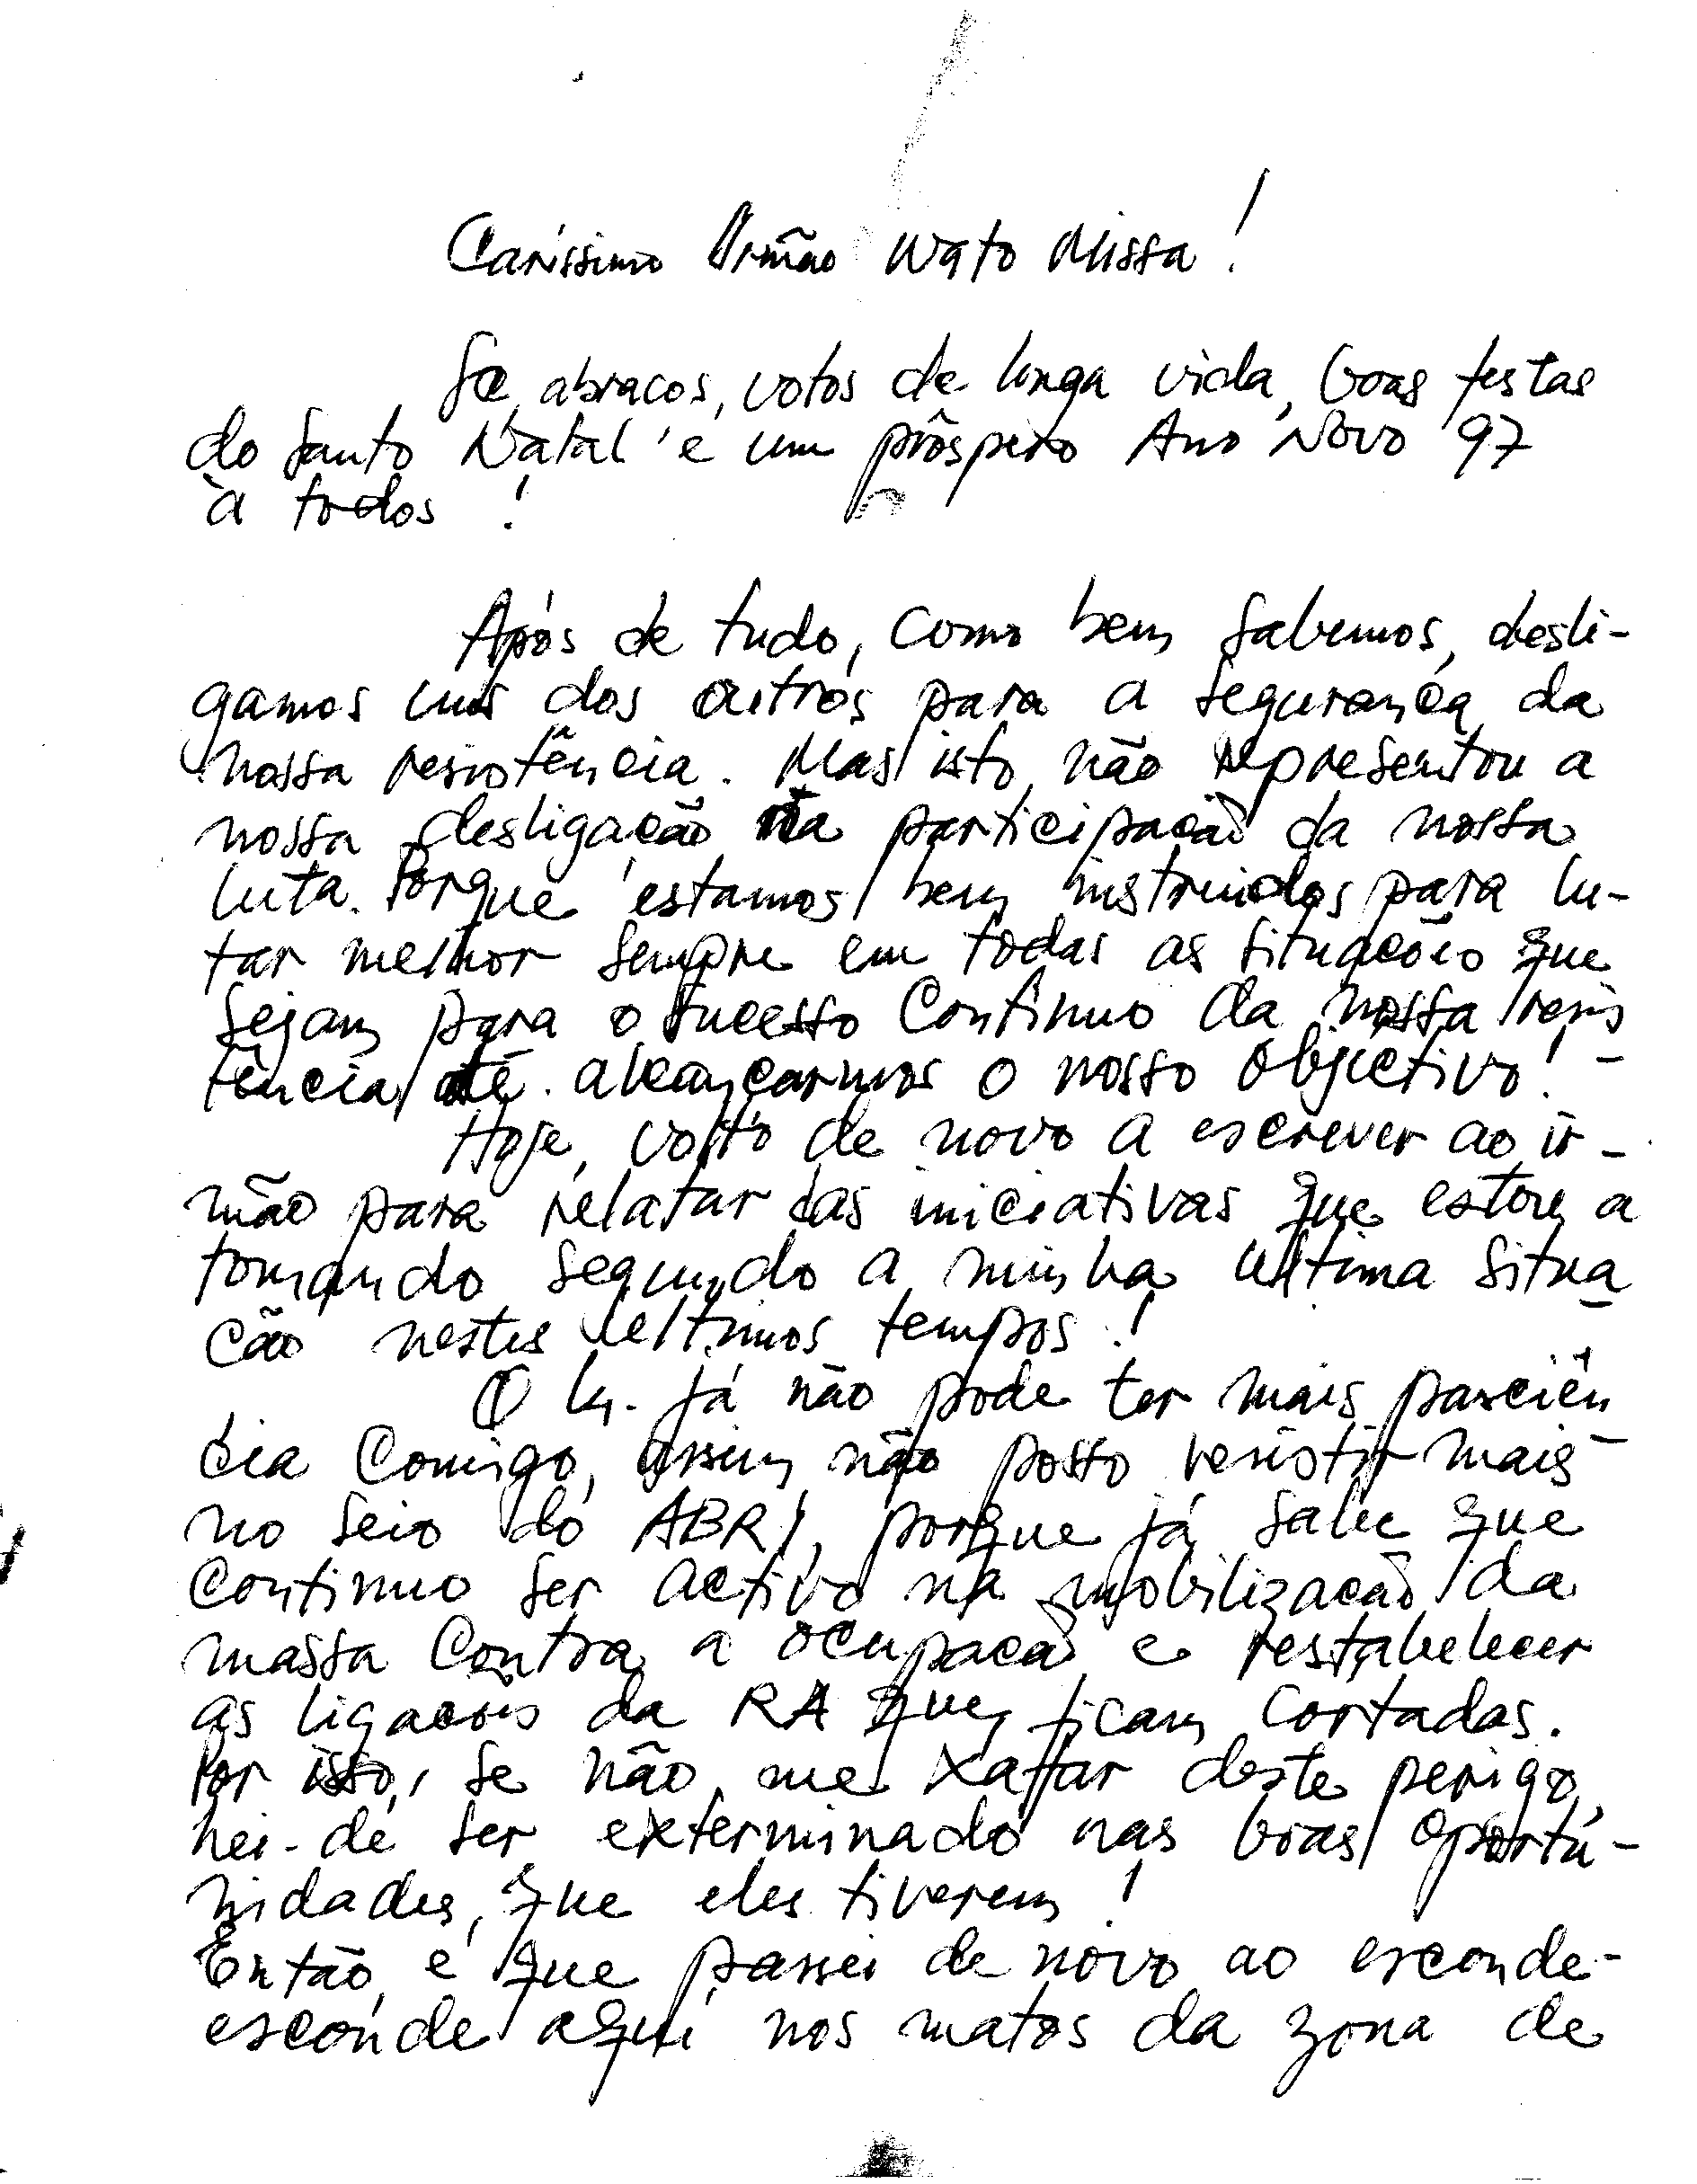 Caríssimo Irmão Wato Missa!
Sa, abracos, votos de longa vida, boas festas
do Santo Natal e um próspero Ano Novo 97
à todos!
Após de tudo, como bem sabemos, desli-
gamos uns dos outros para a segurança da
nossa resistência. Mas isto não representou a
nossa desligação na participação da nossa
luta. Porque estamos bem instruídos para lu-
tar melhor sempre em todas as situações que
sejam para o sucesso contínuo da nossa resis
tência até alcançarmos o nosso objectivo!
Hoje, volto de novo a escrever ao ir-
mão para relatar das iniciativas que estou a
tomando segundo a minha ultima situa
cão nestes ultimos tempos!
O In. já não pode ter mais pasciên
cia comigo, assim não posso resistir mais
no seio do ABRI, porque já sabe que
continuo ser activo na mobilizacão da
massa contra a ocupacão e restabelecer
as ligacões da RA que ficam cortadas.
Por isso, se não me xaffar deste perigo,
hei-de ser exterminado nas boas oportú-
nidades, que eles tiverem!
Então é que passei de novo ao esconde-
esconde aqui nos matos da zona de